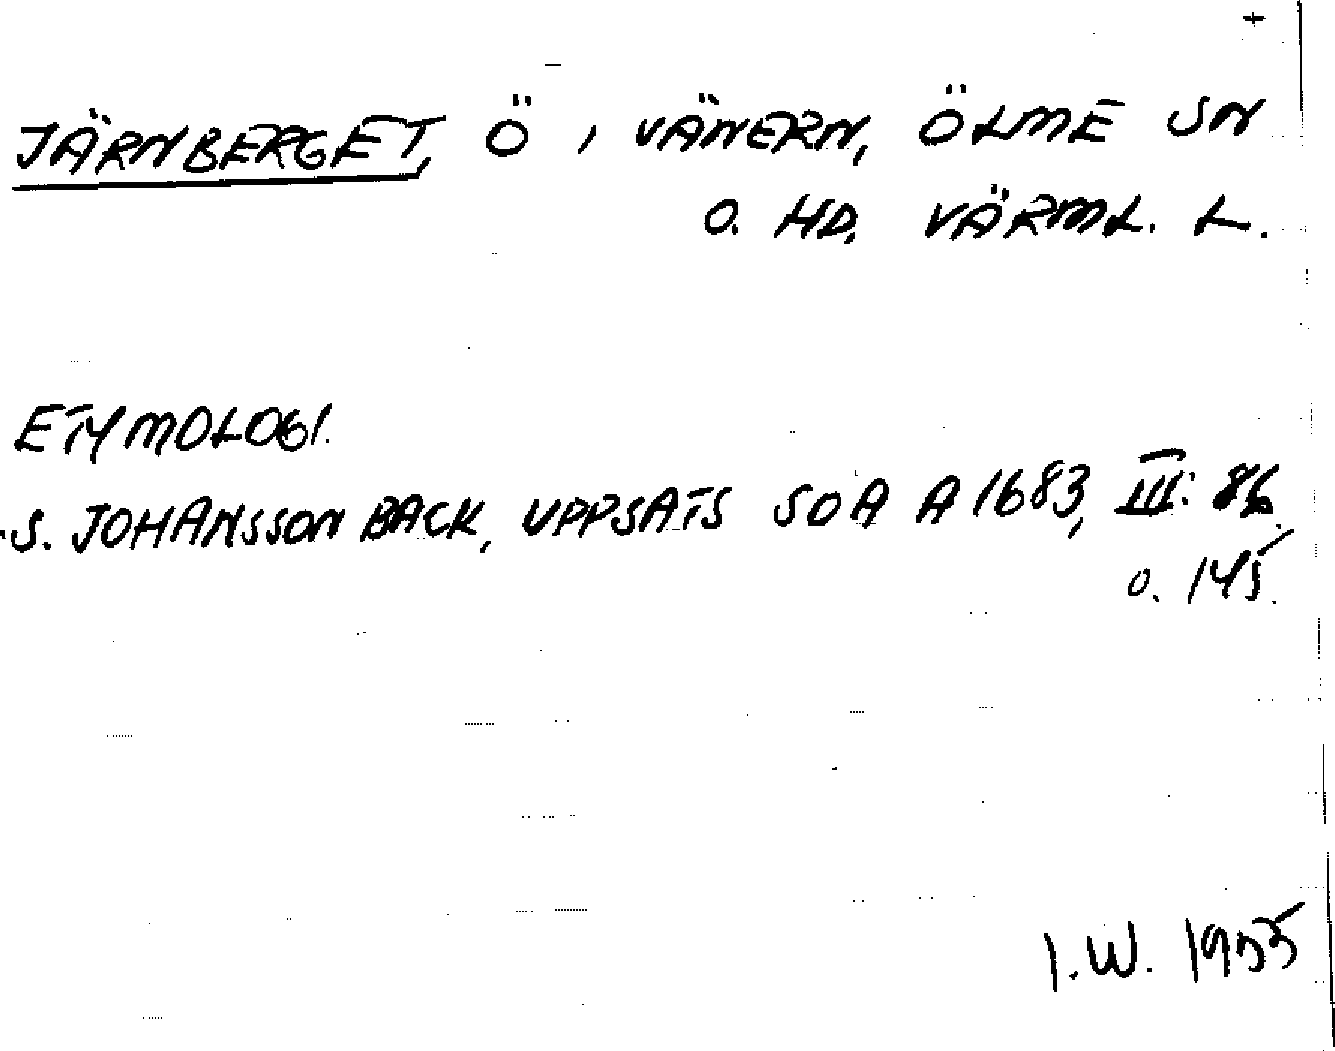 +
JÄRNBERGET, Ö I VÄNERN, ÖLME SN
O. HD, VÄRML. L.
ETYMOLOGI.
S. JOHANSSON BACK, UPPSATS SOA A 1683, III: 86
O. 145.
I.W. 1955